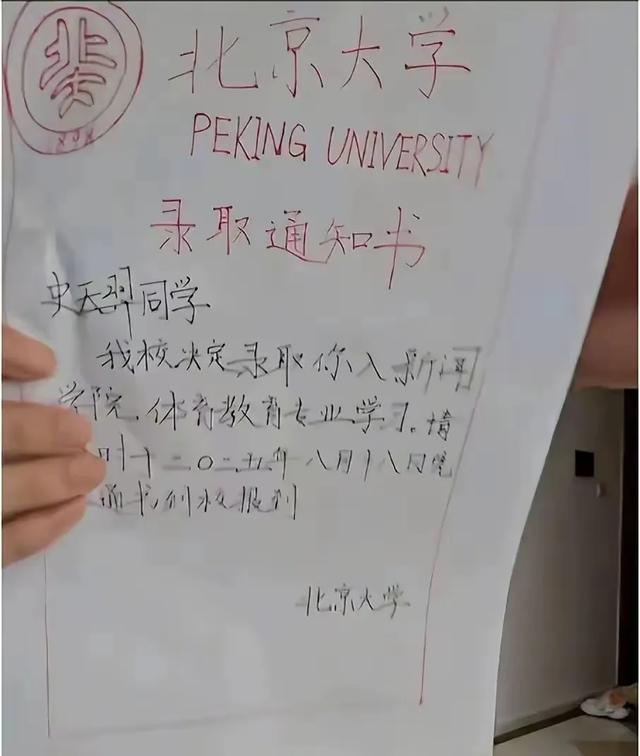 北京大学
PEKING UNIVERSITY
1898
录取通知书
史天羿同学
我校决定录取你入新闻
学院.体育教育专业学习.请
时十二〇二五年八月十八日凭
通书到校报到
北京大学